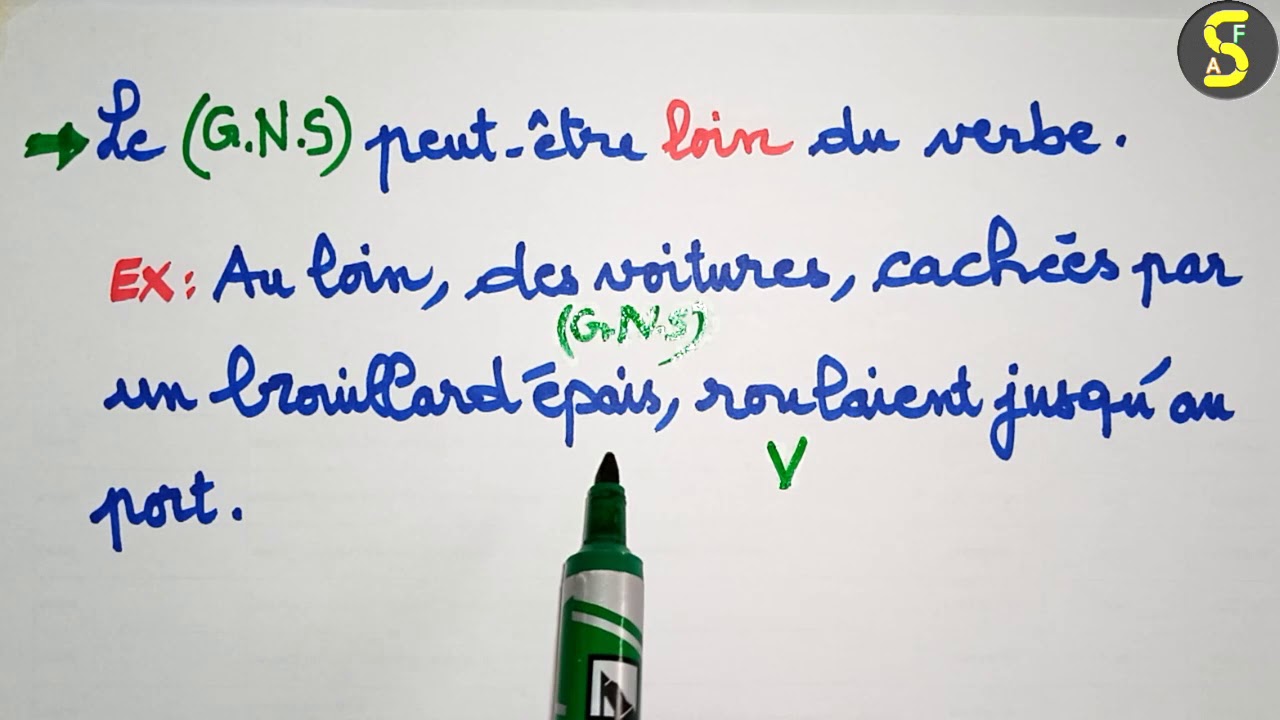 Le (G.N.S) peut-être loin du verbe.
Ex: Au loin, des voitures, cachées par
(G.N.S)
un brouillard épais, roulaient jusqu'au
V
port.
S F A